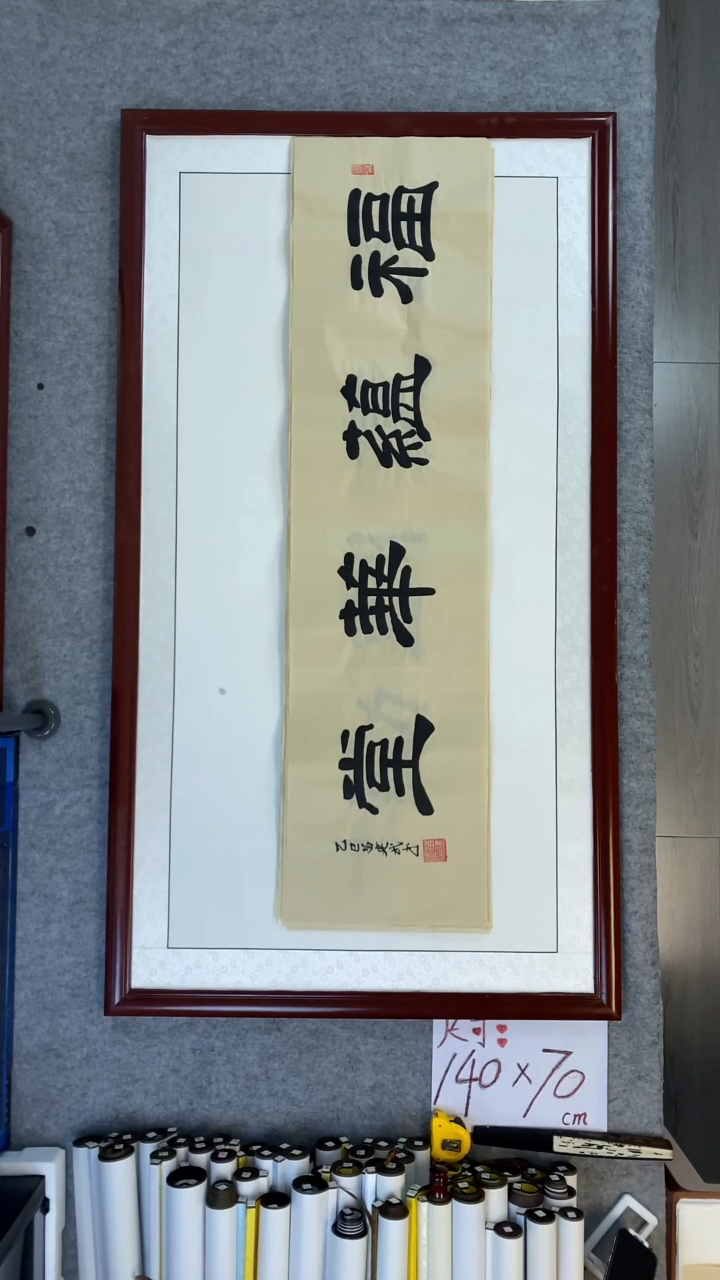 福蘊華堂
乙巳
尺寸:
140×70
cm